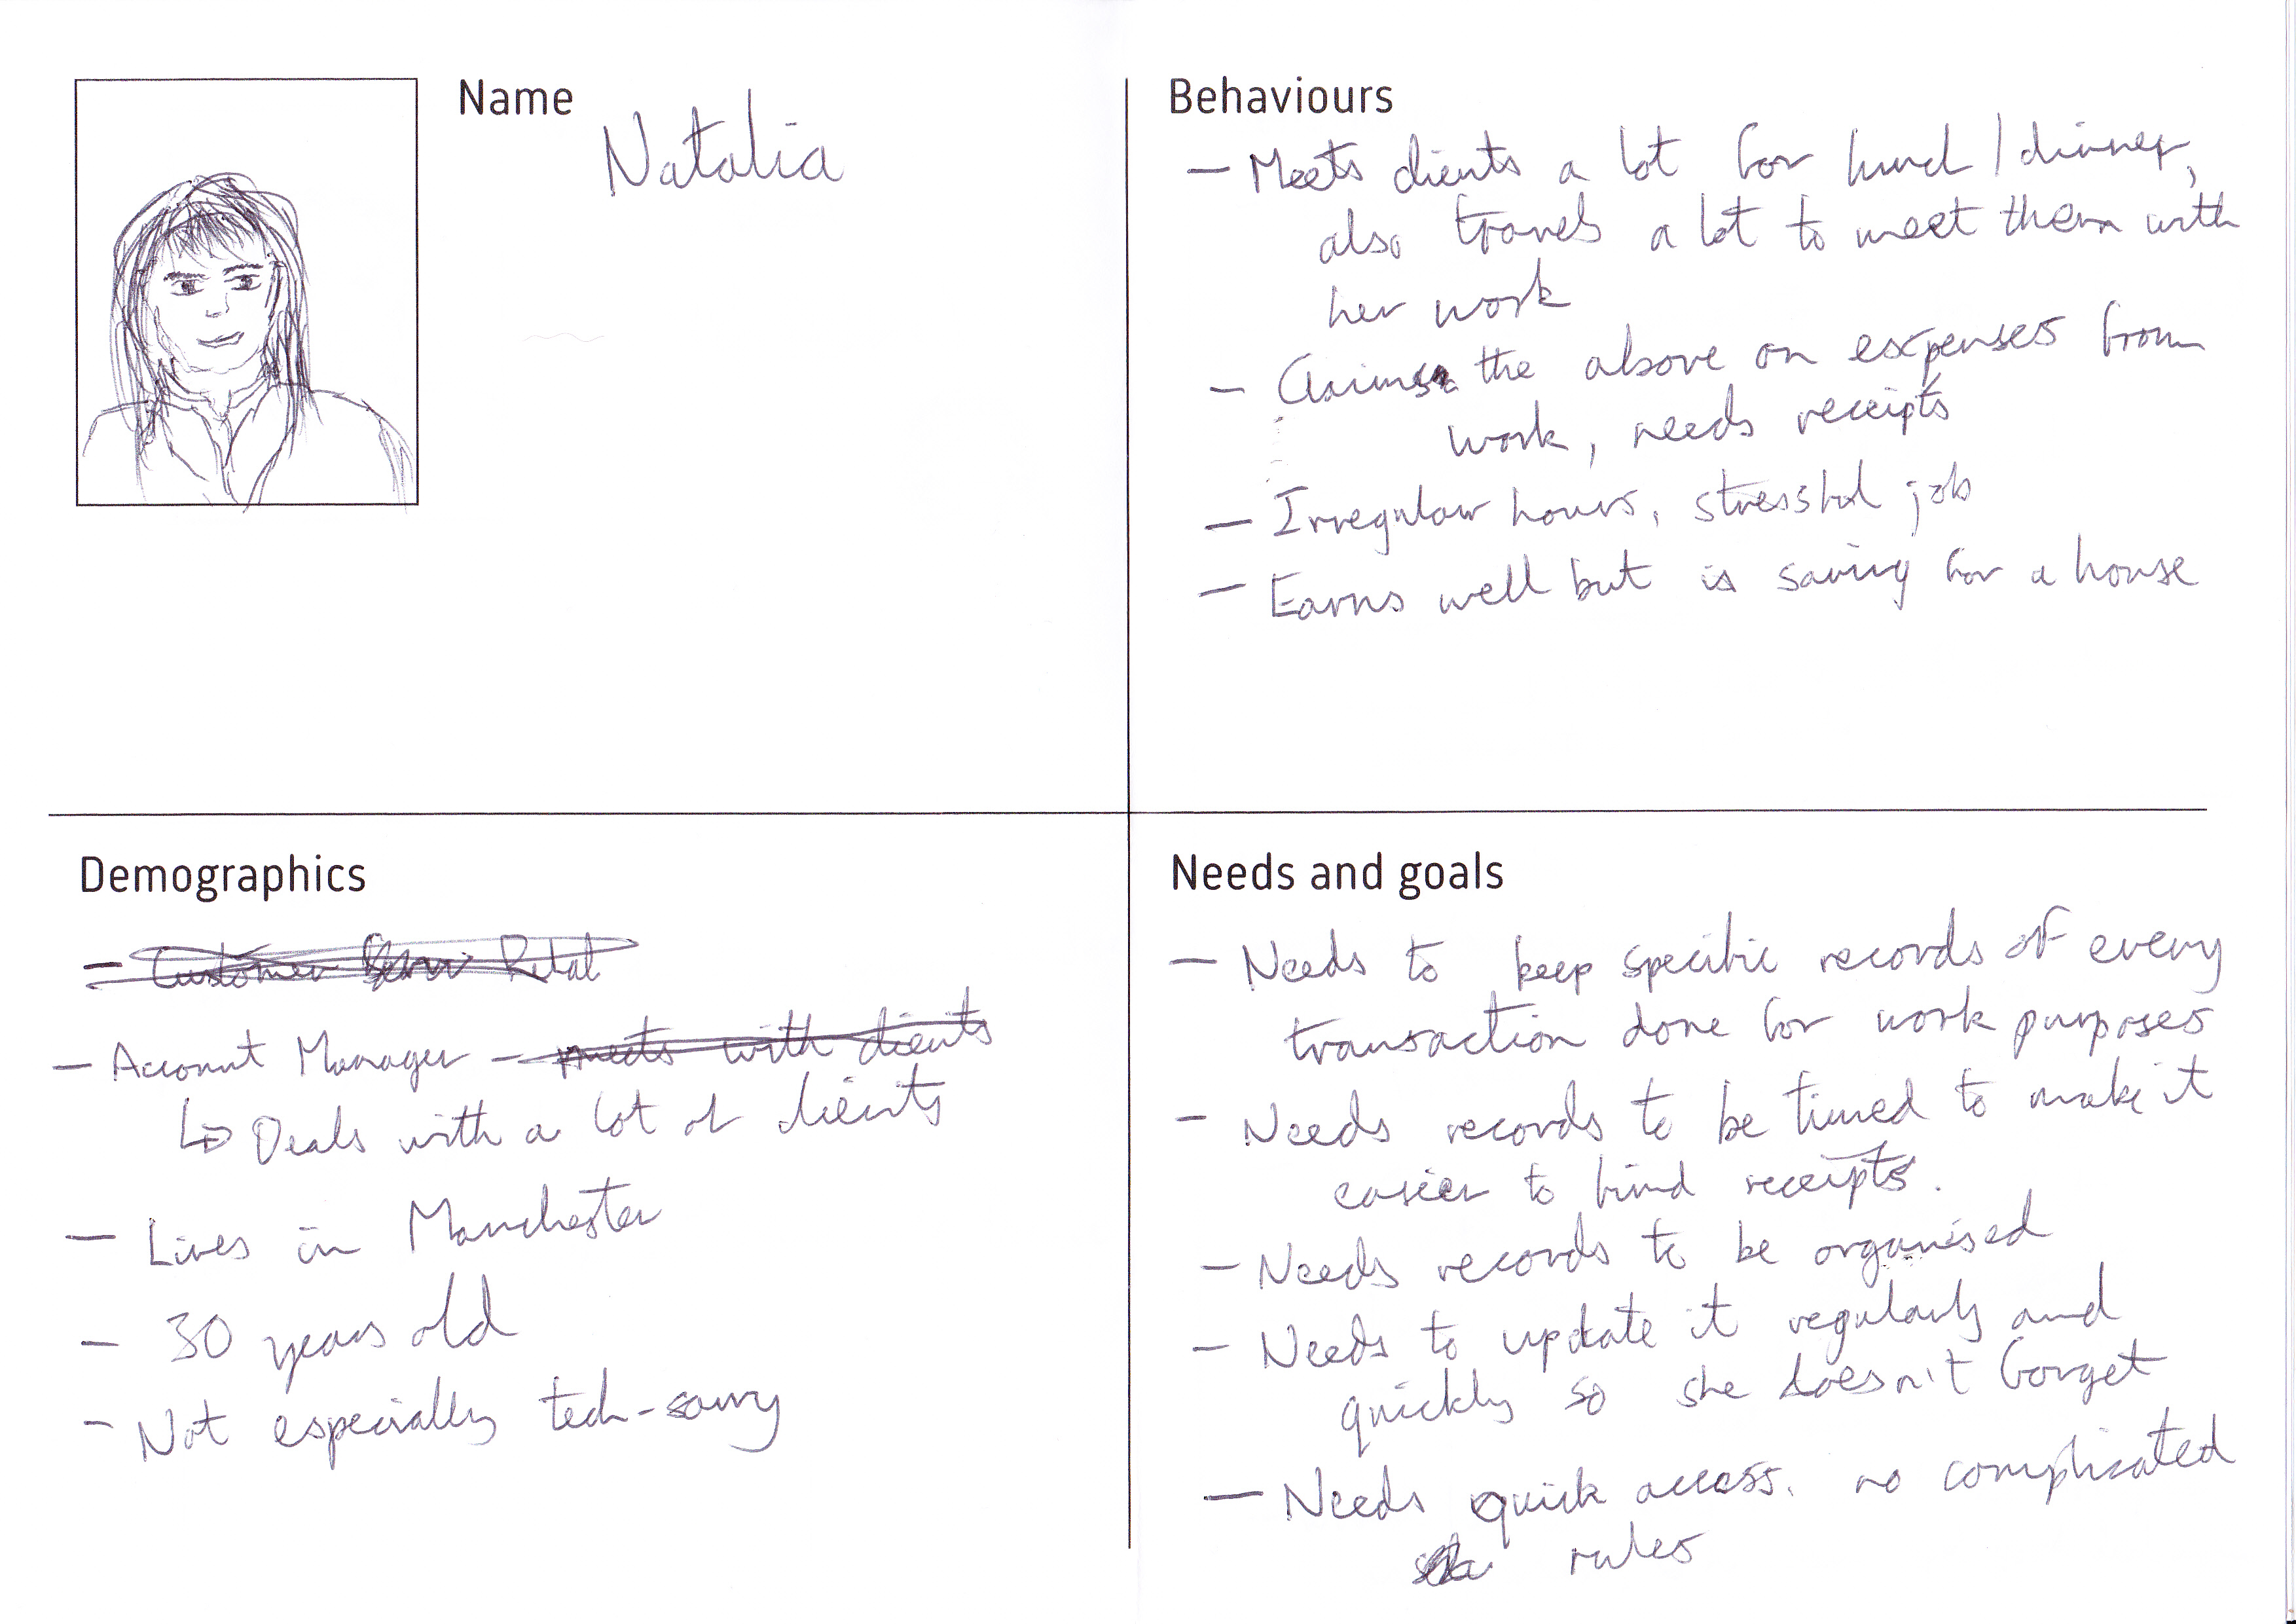 Name
Natalia
Behaviours
– Meets clients a lot for lunch / dinner,
also travels a lot to meet them with
her work
– Claims the above on expenses from
work, needs receipts
– Irregular hours, stressful job
– Earns well but is saving for a house
Demographics
– Customer Relat
– Account Manager – meets with clients
↳ Deals with a lot of clients
– Lives in Manchester
– 30 years old
– Not especially tech-savvy
Needs and goals
– Needs to keep specific records of every
transaction done for work purposes
– Needs records to be timed to make it
easier to find receipts.
– Needs records to be organised
– Needs to update it regularly and
quickly so she doesn't forget
– Needs quick access. no complicated
rules